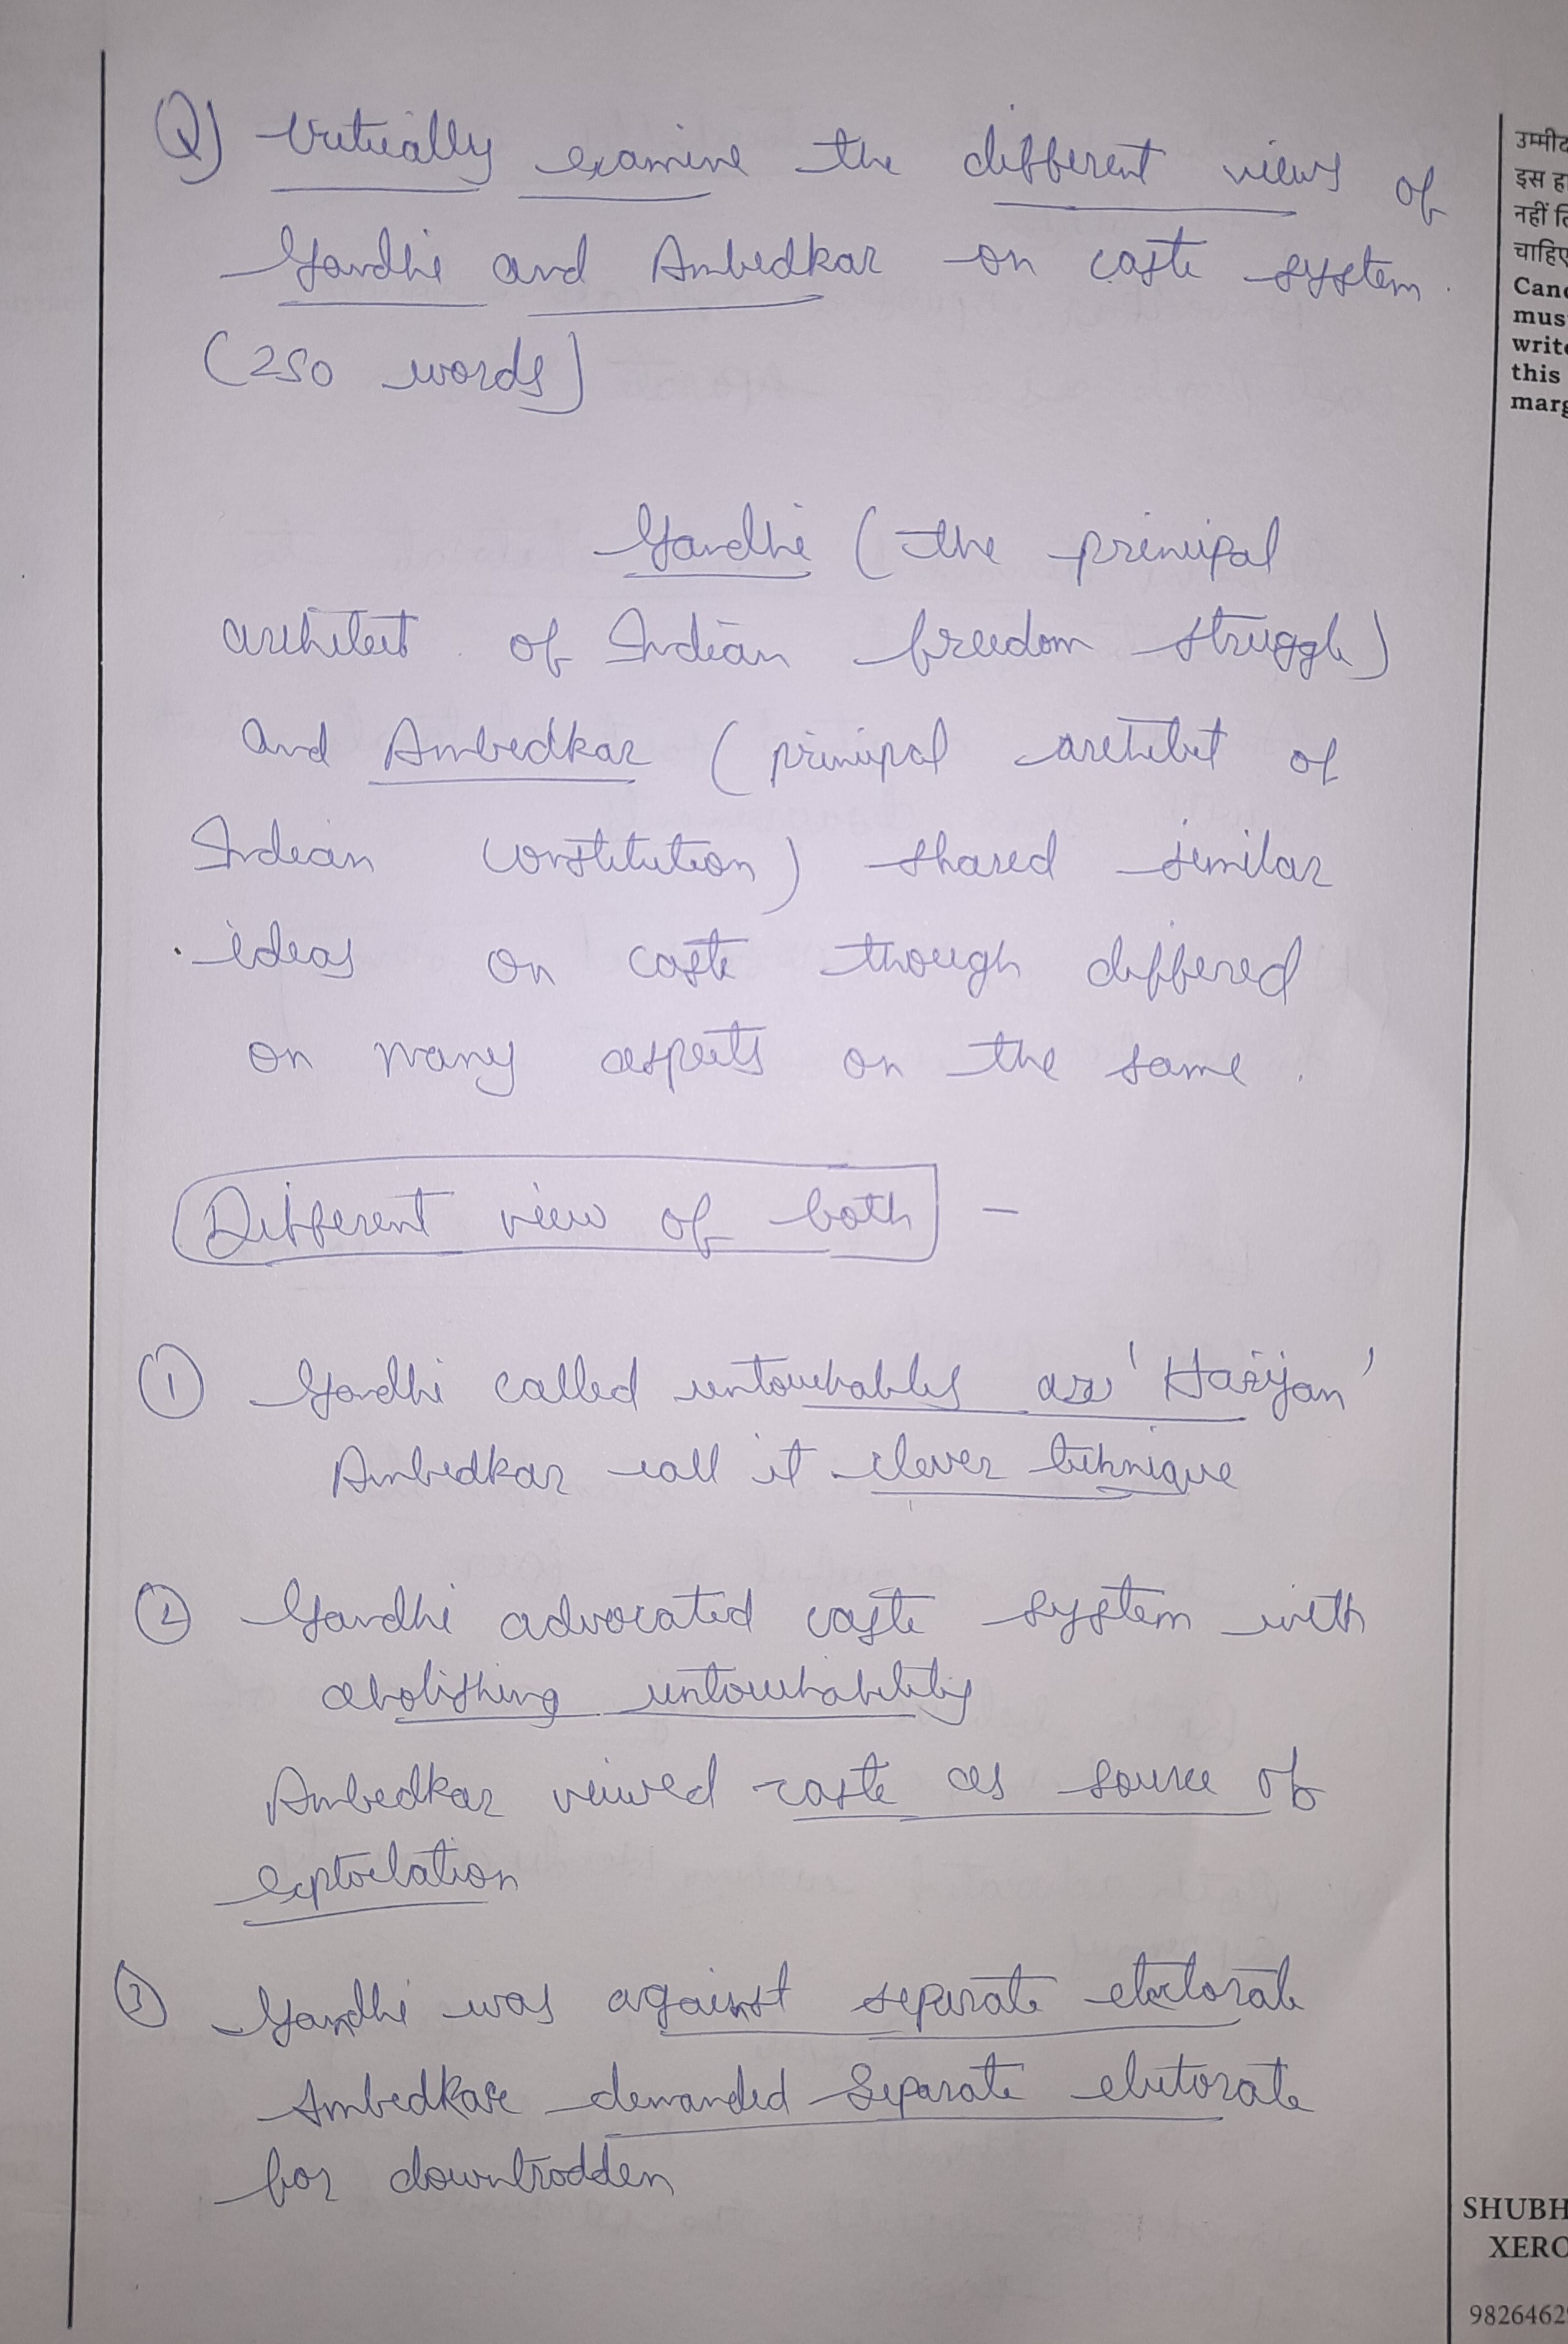 Q) Critically examine the different views of
Gandhi and Ambedkar on caste system.
(250 words)
Gandhi (the principal
architect of Indian freedom struggle)
and Ambedkar (principal architect of
Indian constitution) shared similar
ideas on caste though differed
on many aspects on the same.
Different view of both -
① Gandhi called untouchables as 'Harijan'
Ambedkar call it clever technique
② Gandhi advocated caste system with
abolishing untouchability
Ambedkar viewed caste as source of
exploitation
③ Gandhi was against separate electorate
Ambedkar demanded separate electorate
for downtrodden
उम्मीद
इस ह
नहीं लि
चाहिए
Cand
mus
write
this
marg
SHUBH
XERO
9826462